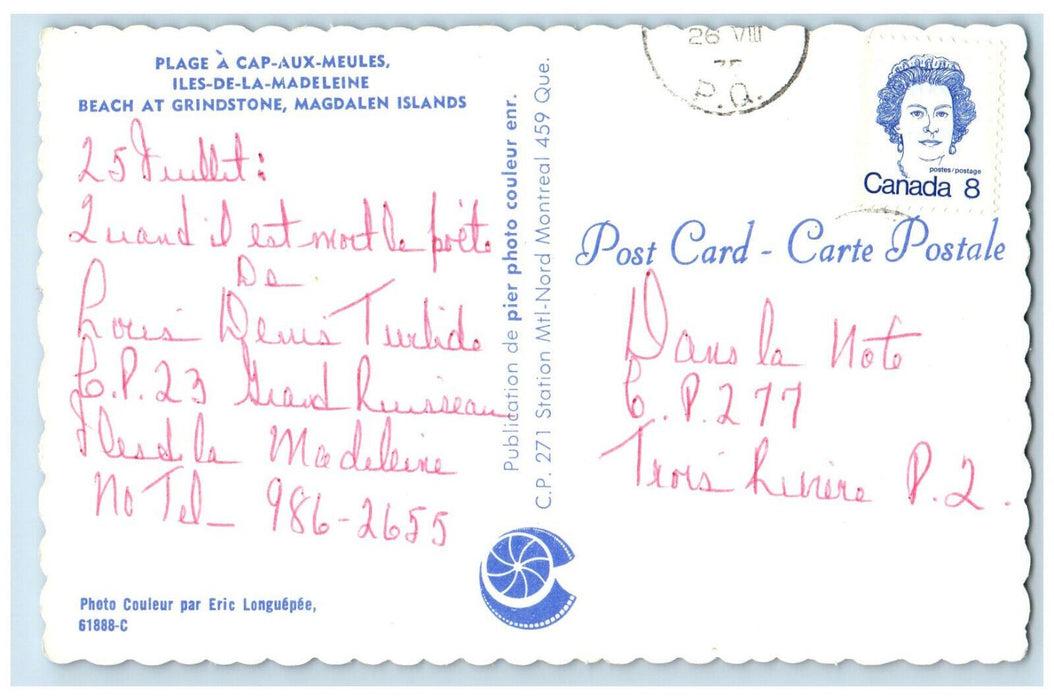 PLAGE À CAP-AUX-MEULES,
ILES-DE-LA-MADELEINE
BEACH AT GRINDSTONE, MAGDALEN ISLANDS
25 Juillet:
Quand il est mort le poète
De
Louis Denis Turbide
C.P. 23 Grand Ruisseau
Iles de la Madeleine
No Tel - 986-2655
Photo Couleur par Eric Longuépée,
61888-C
Publication de pier photo couleur enr.
C.P. 271 Station Mtl-Nord Montreal 459 Que.
26 VIII
P.Q.
postes/postage
Canada 8
Post Card - Carte Postale
Dans la Note
C.P. 277
Trois Rivière P.Q.